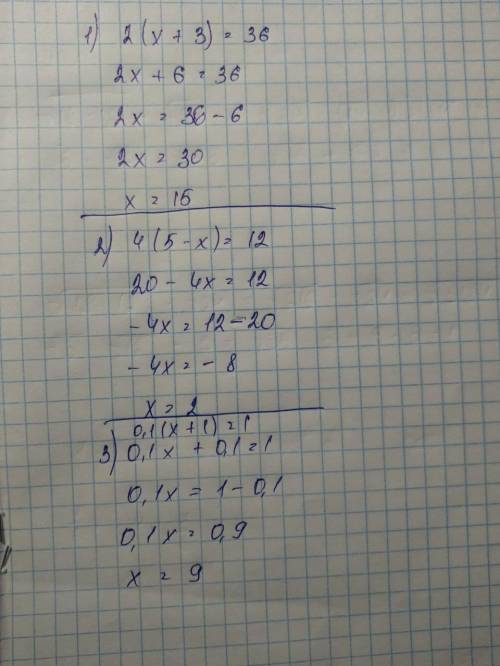 1) 2(x + 3) = 36
2x + 6 = 36
2x = 36 - 6
2x = 30
x = 15
2) 4(5 - x) = 12
20 - 4x = 12
- 4x = 12 - 20
- 4x = - 8
x = 2
0,1(x + 1) = 1
3) 0,1x + 0,1 = 1
0,1x = 1 - 0,1
0,1x = 0,9
x = 9